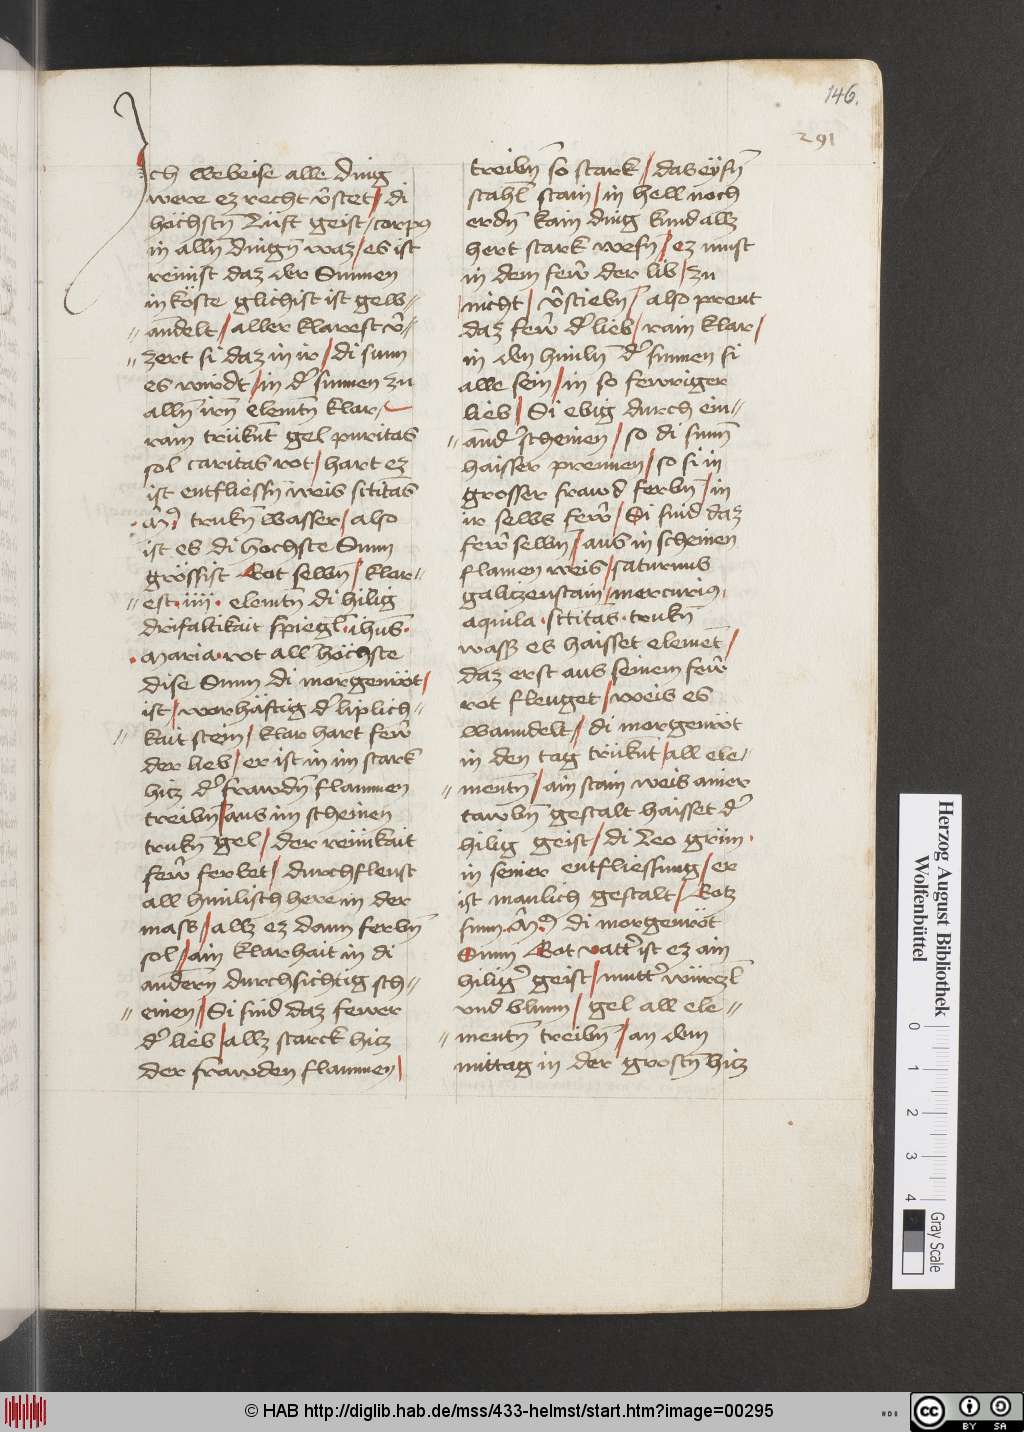 146.
291
Ich webeise alle ding
were ez recht v̄stet / di
höchstn̄ Lüft geist / corpus
in alln̄ dingn̄ waz / es ist
reinist daz der Sunnen
in köste glichist ist gew=
=andelt / aller klarest v̄=
=zert si daz in ir / di sunn
es wirdt / in d' sunnen zu
alln̄ irn̄ elemtn̄ klar /
rain trükn̄t gel puritas
sol caritas rot / hart ez
ist entfliessn̄ weis sctitas
trukn̄ wasser / also
ist es di hochste Sunn
grössist Got selbn̄ / klar=
=est · iiii · elemtn̄ di hilig
drifaltikait spiegl̄ · ihūs ·
· Maria · rot all höchste
dise Sunn di morgenröt /
ist / worhäftig d' liplich=
=kait stein / klar hart few̄r
der lieb / er ist in im stark
hicz d' frawdn̄ flammen
treibn̄ / aus im scheinen
trukn̄ gel / der reinikait
few̄r ferbet / durchfleust
all himlisch here in der
mass / allz ez dann ferbn̄
sol / ain klarhait in di
andern̄ durchsichtig sch=
=einen / Si sind daz fewer
d' lieb / allz starck hicz
der frawden flammen /
treibn̄ so stark / das eÿsn̄
stahl̄ stain / in hell noch
erdn̄ kain ding kund allz
hert stark wesn̄ / ez must
in dem few̄r der lib / zu
nicht / v̄stiebn̄ / also prent
daz few̄r d' lieb / rain klar /
in den himln̄ d' sunnen si
alle sein / in so fewriger
lieb / Si ebig durch ein=
=and' scheinen / so di sunn̄
haisser prennen / so si in
grosser frawd ferbn̄ / in
ir selbs few̄r / Si sind daz
few̄r selbn̄ / aus in scheinen
flamen weis / saturnus
galiczenstain / mercurius,
aquila · sctitas · trukn̄
wass es haisset elemēt /
daz erst aus seinem few̄r
rot fleuget / weis es
wanndelt / di morgenröt
in den tag trüknt / all ele=
=mentn̄ / ain stain weis ainer
tawbn̄ gestalt haisset d'
hilig geist / di Leo grün ·
in seiner entfliessung / er
ist manlich gestalt / Gotz
sunn di morgenröt
Sunn Got vatt' ist ez ain
hilig' geist / mutt' würczl̄
vnd blum / gel all ele=
=mentn̄ treibn̄ / an dem
mittag in der grostn̄ hicz
Herzog August Bibliothek
Wolfenbüttel
0 1 2 3 4
Gray Scale
© HAB http://diglib.hab.de/mss/433-helmst/start.htm?image=00295
HAB
cc BY SA